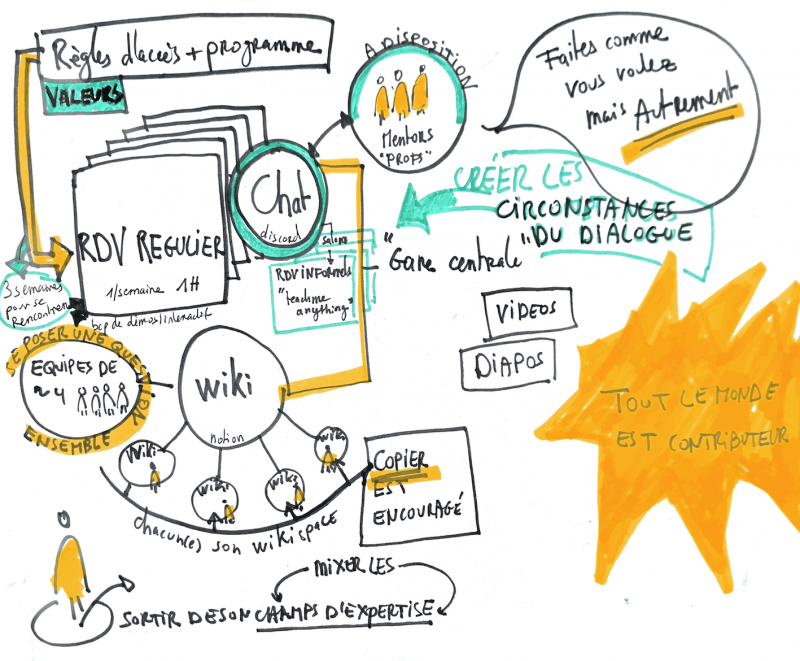 Règles d'accès + programme
VALEURS
A DISPOSITION
Mentors
"PROFS"
Faites comme
vous voulez
mais AUTREMENT
Chat
discord
CRÉER LES
CIRCONSTANCES
DU DIALOGUE
RDV REGULIER
1/semaine 1H
salons
RDV INFORMELS
"teach me
anything"
"Gare centrale"
3 semaines
pour se
rencontrer
bcp de démos/interactif
SE POSER UNE QUESTION
ENSEMBLE
EQUIPES DE
~ 4
wiki
notion
wiki
wiki
wiki
wiki
chacun(e) son wikispace
COPIER
EST
ENCOURAGÉ
VIDEOS
DIAPOS
TOUT LE MONDE
EST CONTRIBUTEUR
MIXER LES
SORTIR DE SON CHAMPS D'EXPERTISE